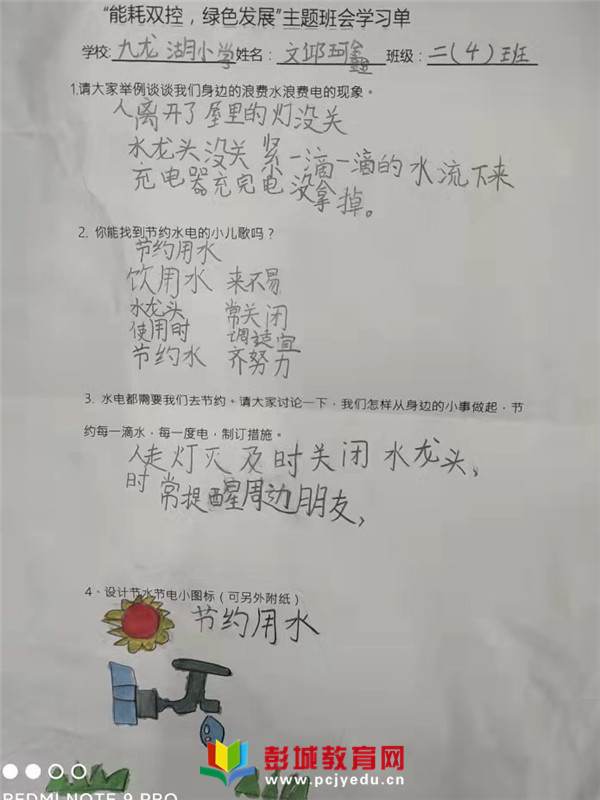 “能耗双控，绿色发展”主题班会学习单
学校:九龙湖小学姓名：文邺珂鑫班级：二(4)班
1.请大家举例谈谈我们身边的浪费水浪费电的现象。
人离开了屋里的灯没关
水龙头没关紧一滴一滴的水流下来
充电器充完电没拿掉。
2. 你能找到节约水电的小儿歌吗？
节约用水
饮用水 来不易
水龙头 常关闭
使用时 调适宜
节约水 齐努力
3. 水电都需要我们去节约。请大家讨论一下，我们怎样从身边的小事做起，节
约每一滴水，每一度电，制订措施。
人走灯灭及时关闭水龙头、
时常提醒周边朋友，
4、设计节水节电小图标（可另外附纸）
节约用水
彭城教育网
www.pcjyedu.cn
REDMI NOTE 9 PRO